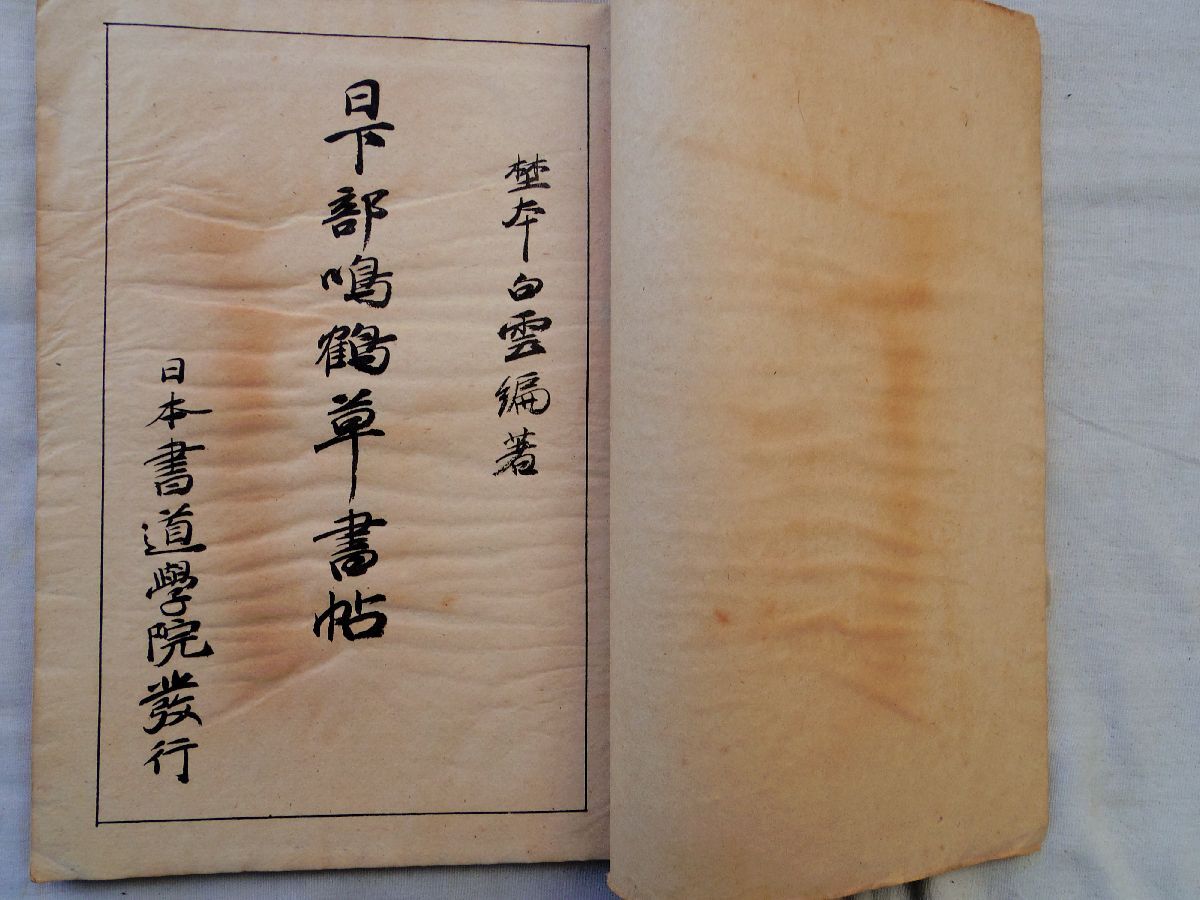 埜本白雲編著
日下部鳴鶴草書帖
日本書道學院發行